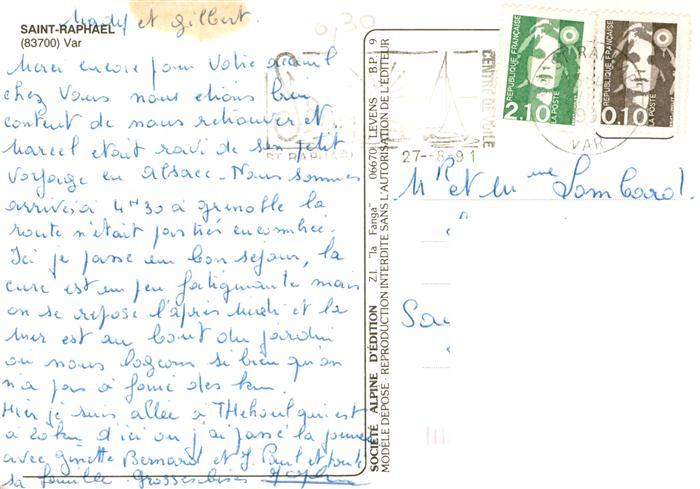 SAINT-RAPHAËL
(83700) Var
Mady et Gilbert.
Merci encore pour votre accueil
chez vous nous etions bien
content de nous retrouver et
Marcel etait ravi de son petit
voyage en Alsace - Nous sommes
arrivés à 4H30 à grenoble la
route n'était pas très encombrée.
Ici je passe un bon sejour, la
cure est un peu fatiguante mais
on se repose l'après midi et la
mer est au bout du jardin
où nous logeons si bien qu'on
n'a pas à faire des km
Hier je suis allée à THéhoul qui est
à 20km d'ici où j'ai passé la journée
avec Ginette Bernard et J. Paul et toute
sa famille. Grosses bises
0,30
ST RAPHAEL
CENTRE DE VOILE
27-8.91
VAR
REPUBLIQUE FRANÇAISE
2,10
LA POSTE
REPUBLIQUE FRANÇAISE
0,10
LA POSTE
SOCIÉTÉ ALPINE D'ÉDITION Z.I. "la Fanga" 06670 LEVENS B.P. 9
MODÈLE DÉPOSÉ - REPRODUCTION INTERDITE SANS L'AUTORISATION DE L'ÉDITEUR
Mr et Mme Lombard.